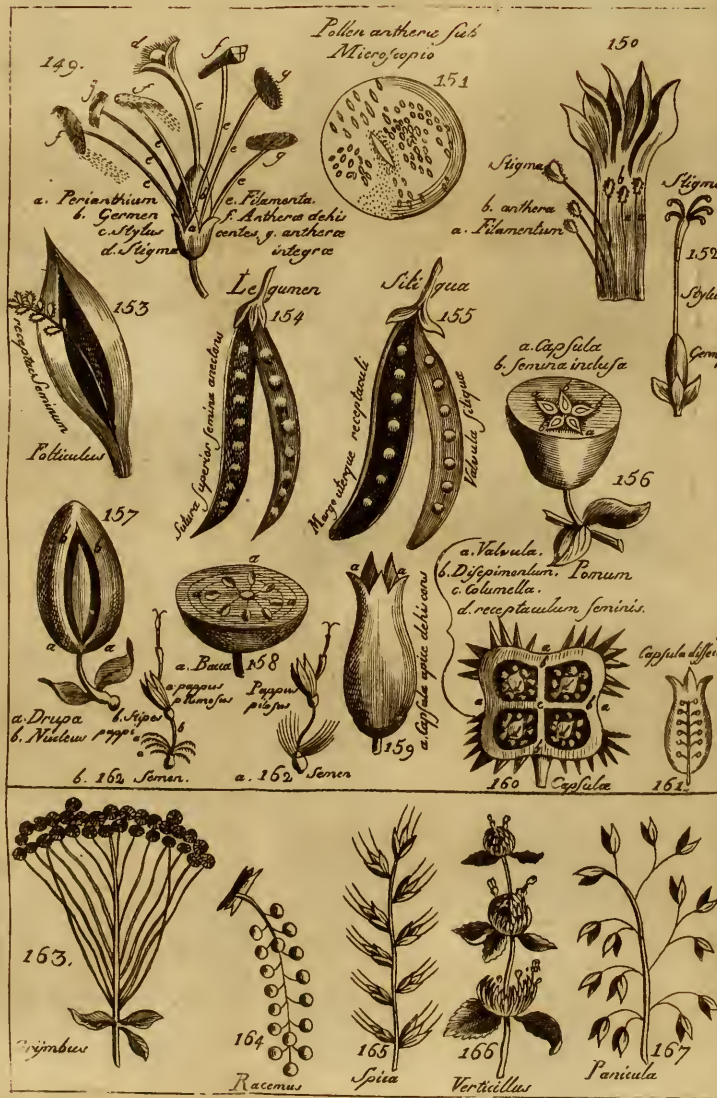 149.
d
f
j
f
g
f
g
e
e
e
e
e
e
a
b
a. Perianthium
b. Germen
c. Stylus
d. Stigma
e. Filamenta.
f. Antheræ dehis
centes, g. antheræ
integræ
Pollen antheræ sub
Microscopio
151
150
b
Stigma
b. anthera
a. Filamentum
Stigma
152
Stylu
Germ
153
receptac. Seminum
Folliculus
Legumen
154
Sutura Superior semina anectens
Siliqua
155
Margo uterque receptaculi
Valvula siliquæ
a. Capsula
b. Semina inclusa
a
156
Pomum
157
b
b
a
a
a. Drupa
b. Nucleus
a
158
a. Bacca
a. pappus
plumosus
b. Stipes
pappi
a
b
b. 162 Semen.
Pappus
pilosus
a. 162 Semen
a
a
159
a. Capsula apice dehiscens
a. Valvula.
b. Disepimentum.
c. Columella.
d. receptaculum seminis.
a
b
d
c
a
a
160
Capsulæ
Capsula disse
161.
163.
164
Racemus
165
Spica
166
Verticillus
167
Panicula